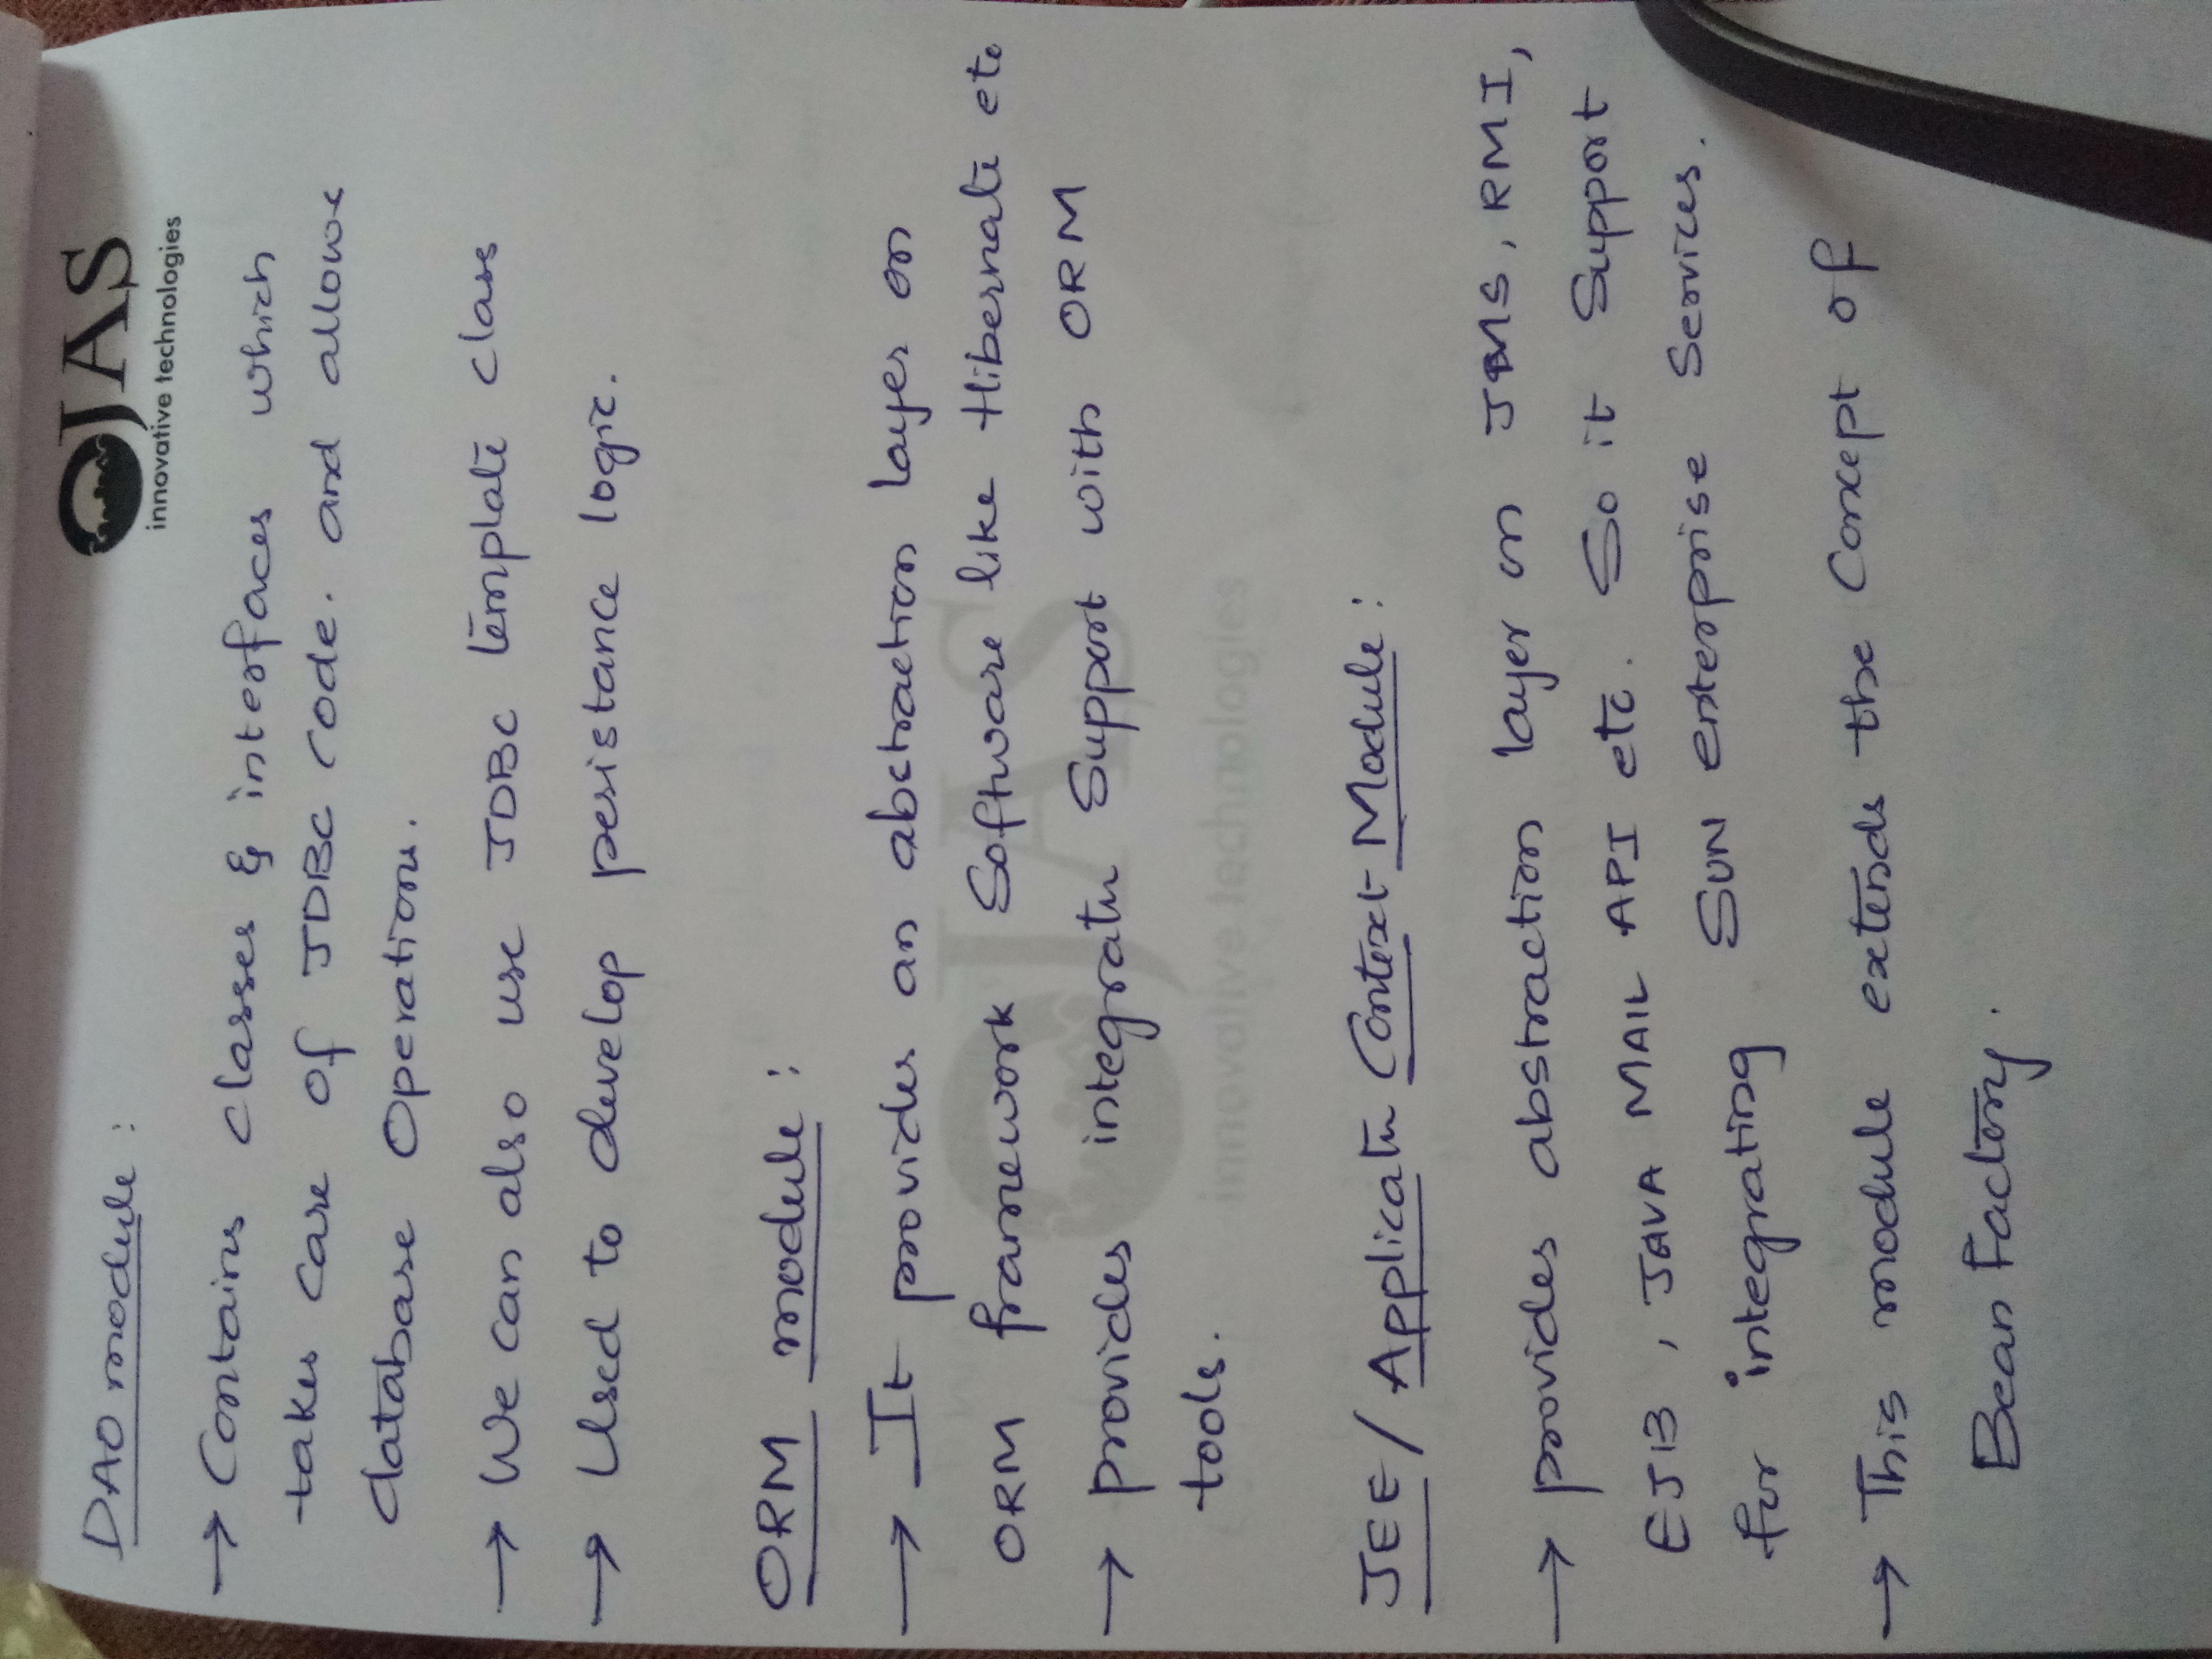 OJAS
innovative technologies
DAO module :
→ Contains classes & interfaces which
takes care of JDBC code. and allows
database operations.
→ We can also use JDBC template class
→ Used to develop pesistance logic.
ORM module :
→ It provides an abstraction layer on
ORM framework Software like Hibernate etc
→ provides integratn Support with ORM
tools.
JEE / Applicatn Context Module :
→ provides abstraction layer on JMS, RMI,
EJB, JAVA MAIL API etc. So it Support
for integrating SUN enterprise Services.
→ This module extends the Concept of
Bean Factory.
OJAS
innovative technologies